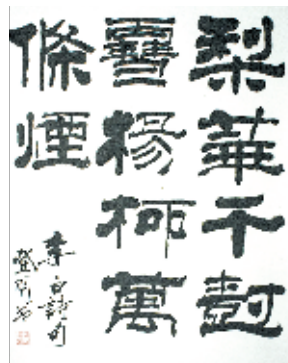 梨華千尌
雪楊柳萬
條煙
李白詩句